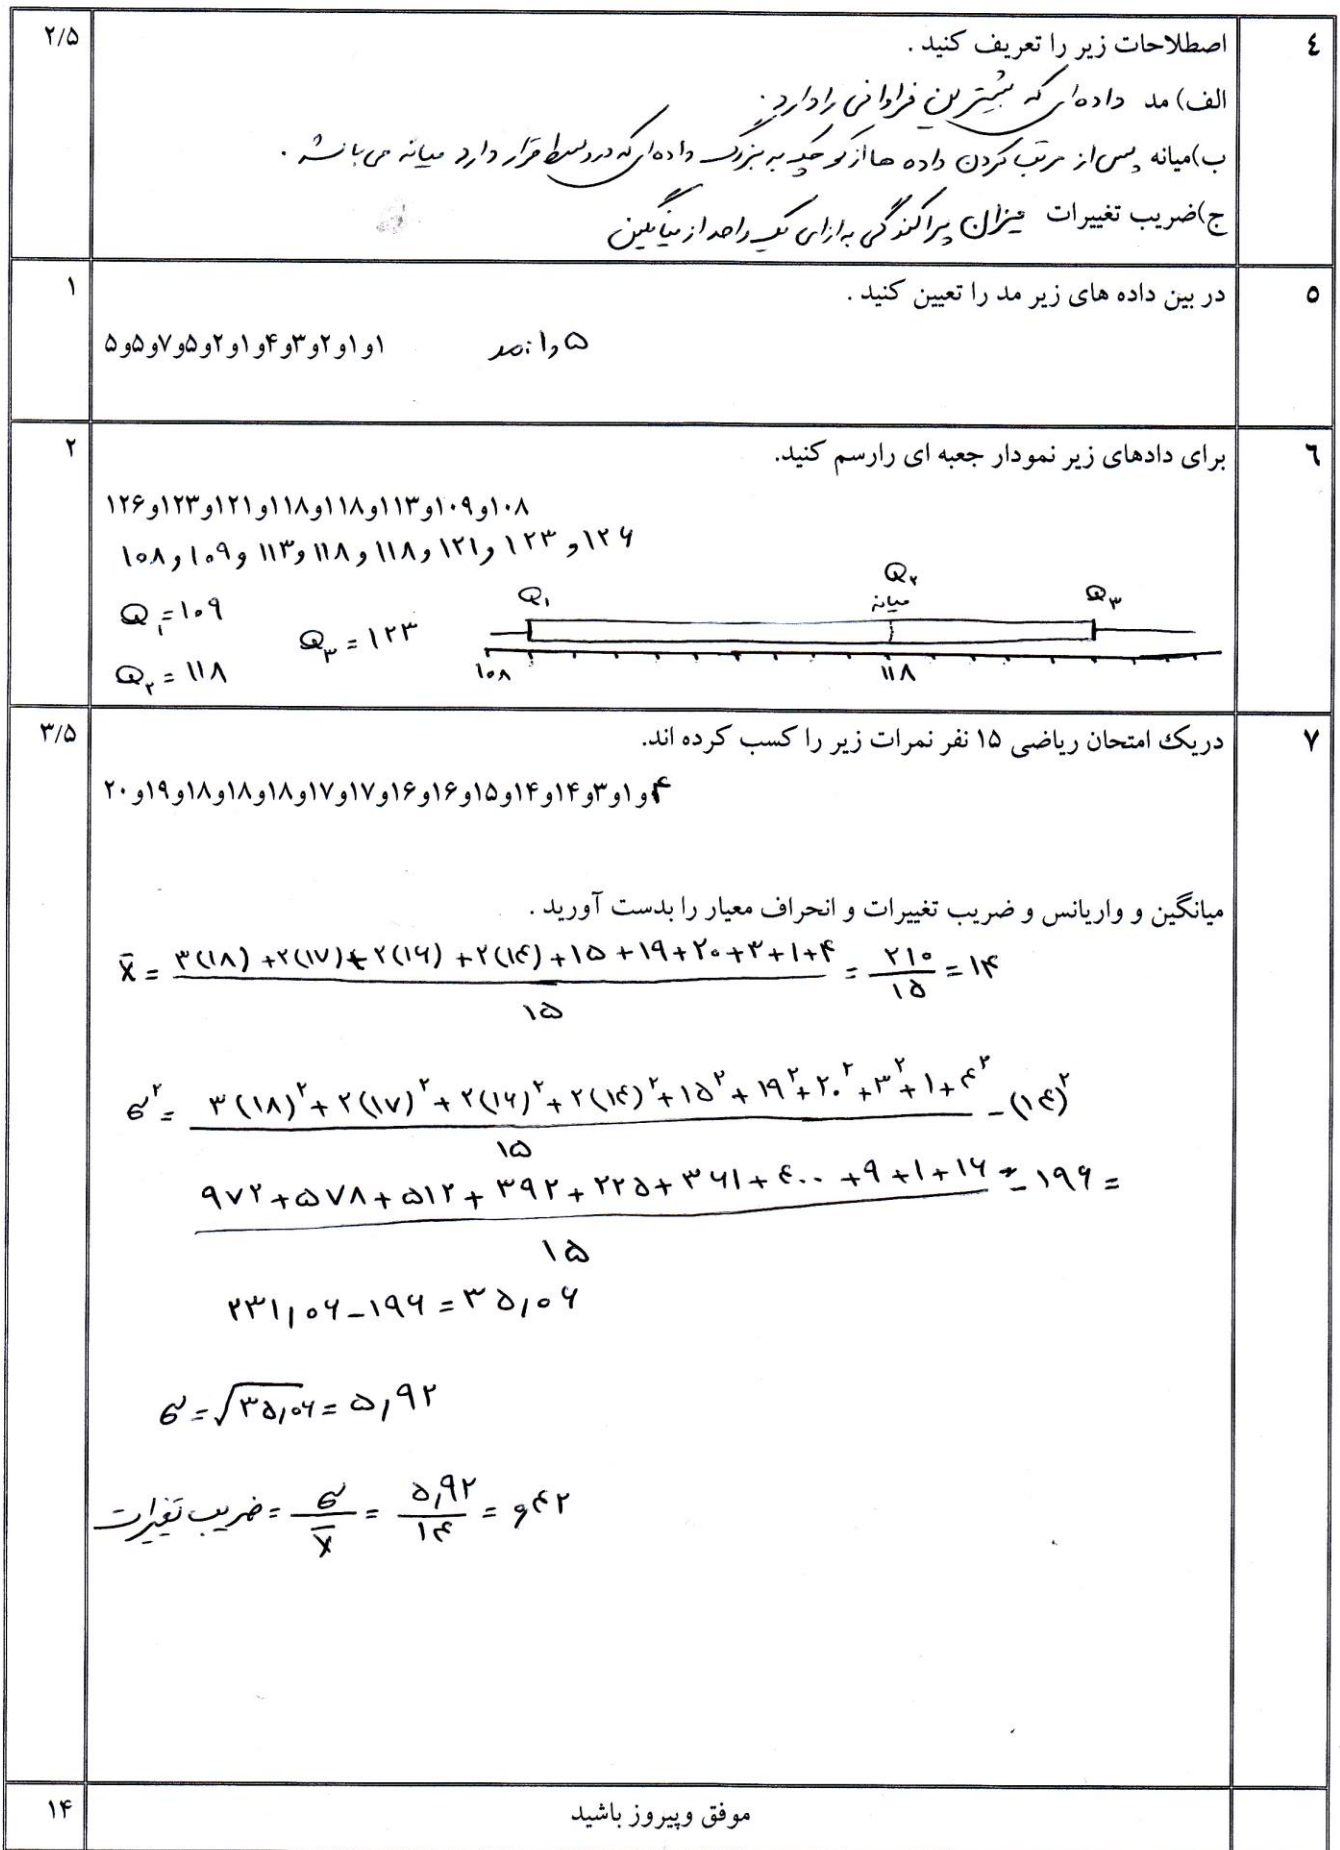 ۴ اصطلاحات زیر را تعریف کنید . ۲/۵
الف) مد داده ای که بیشترین فراوانی را دارد .
ب)میانه پس از مرتب کردن داده ها از کوچک به بزرگ داده ای که در وسط قرار دارد میانه می باشد .
ج)ضریب تغییرات میزان پراکندگی به ازای یک واحد از میانگین
۵ در بین داده های زیر مد را تعیین کنید . ۱
۱و۱و۲و۳و۴و۱و۲و۵و۷و۵و۵ مد: ۱و۵
۶ برای دادهای زیر نمودار جعبه ای رارسم کنید. ۲
۱۰۸و۱۰۹و۱۱۳و۱۱۸و۱۱۸و۱۲۱و۱۲۳و۱۲۶
۱۰۸و۱۰۹و۱۱۳و۱۱۸و۱۱۸و۱۲۱و۱۲۳و۱۲۶
Q۱ = ۱۰۹
Q۳ = ۱۲۳
Q۲ = ۱۱۸
Q۱ Q۲ Q۳
میانه
۱۰۸ ۱۱۸
۷ دریک امتحان ریاضی ۱۵ نفر نمرات زیر را کسب کرده اند. ۳/۵
۴و۱و۳و۱۴و۱۴و۱۵و۱۶و۱۶و۱۷و۱۷و۱۸و۱۸و۱۸و۱۹و۲۰
میانگین و واریانس و ضریب تغییرات و انحراف معیار را بدست آورید .
x̄ = ۳(۱۸)+۲(۱۷)+۲(۱۶)+۲(۱۴)+۱۵+۱۹+۲۰+۳+۱+۴ / ۱۵ = ۲۱۰ / ۱۵ = ۱۴
σ² = ۳(۱۸)²+۲(۱۷)²+۲(۱۶)²+۲(۱۴)²+۱۵²+۱۹²+۲۰²+۳²+۱+۴² / ۱۵ - (۱۴)²
۹۷۲+۵۷۸+۵۱۲+۳۹۲+۲۲۵+۳۶۱+۴۰۰+۹+۱+۱۶ / ۱۵ - ۱۹۶ =
۲۳۱,۰۶ - ۱۹۶ = ۳۵,۰۶
σ = √۳۵,۰۶ = ۵,۹۲
ضریب تغیرات = σ / x̄ = ۵,۹۲ / ۱۴ = و۴۲
موفق وپیروز باشید ۱۴